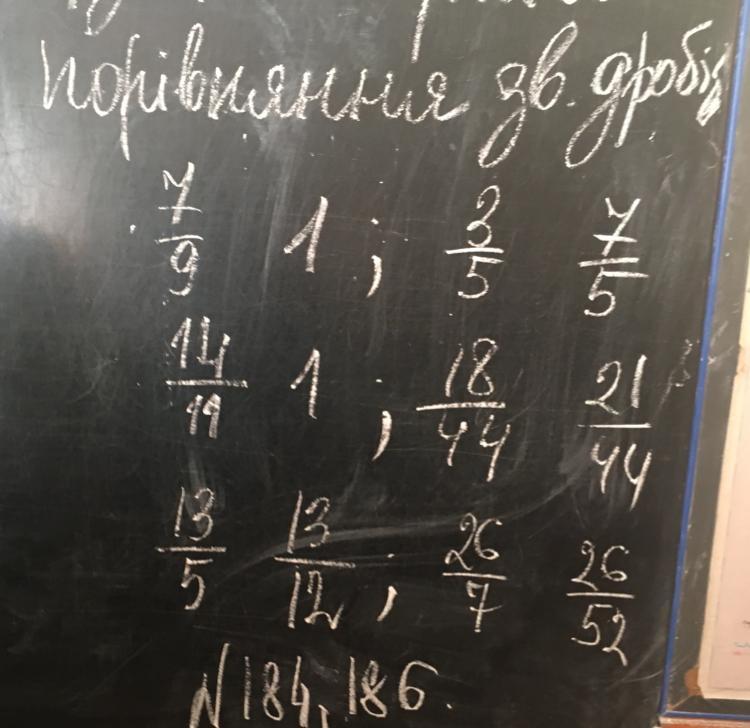 порівняння зв. дробів
7/9 1 ; 3/5 7/5
14/11 1 ; 18/44 21/44
13/5 13/12 ; 26/7 26/52
N 184, 186.